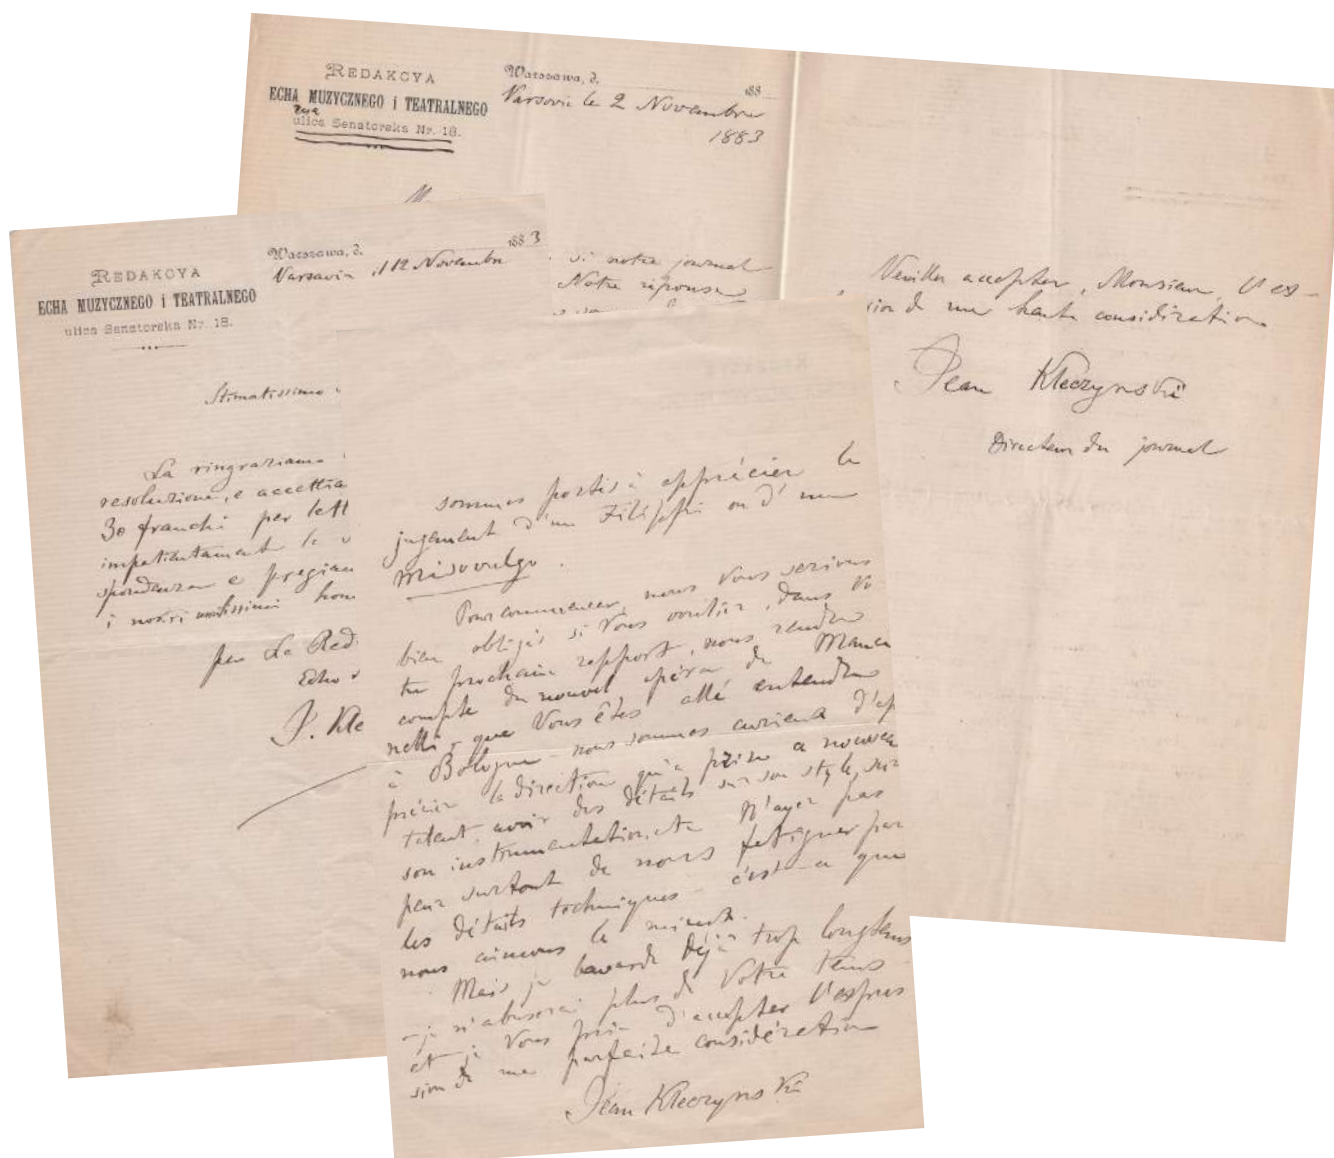 REDAKCYA
ECHA MUZYCZNEGO i TEATRALNEGO
rue
ulica Senatorska Nr. 18.
Warszawa, d. 188
Varsovie le 2 Novembre
1883
M
si notre journal
Notre réponse
Veuillez accepter, Monsieur, l'ex-
sion de ma haute considération
Jean Kleczynski
Directeur du journal
REDAKCYA
ECHA MUZYCZNEGO i TEATRALNEGO
ulica Senatorska Nr. 18.
Warszawa, d. 1883
Varsavia il 12 Novembre
Stimatissimo
La ringraziamo
resoluzione, e accettia
30 franchi per lett
impatientamente le
spondenza e pregiam
i nostri moltissimi hom
per La Red
Echo
J. Kle
sommes portés à apprécier le
jugement d'un Filippi ou d'un
Misovulgo.
Pour commencer, nous Vous serions
bien obligés si Vous vouliez, dans Vo-
tre prochain rapport, nous rendre
compte du nouvel opéra de Manci
nelli - que Vous êtes allé entendre
à Bologne - nous sommes curieux d'ap
précier la direction qu'a prise ce nouveau
talent, avoir des détails sur son style, sur
son instrumentation, etc. N'ayez pas
peur surtout de nous fatiguer par
les détails techniques - c'est ce que
nous aimons le mieux.
Mais je bavarde déjà trop longtems
- je n'abuserai plus de Votre tems
et je Vous prie d'accepter l'expres
sion de ma parfaite considération
Jean Kleczynski